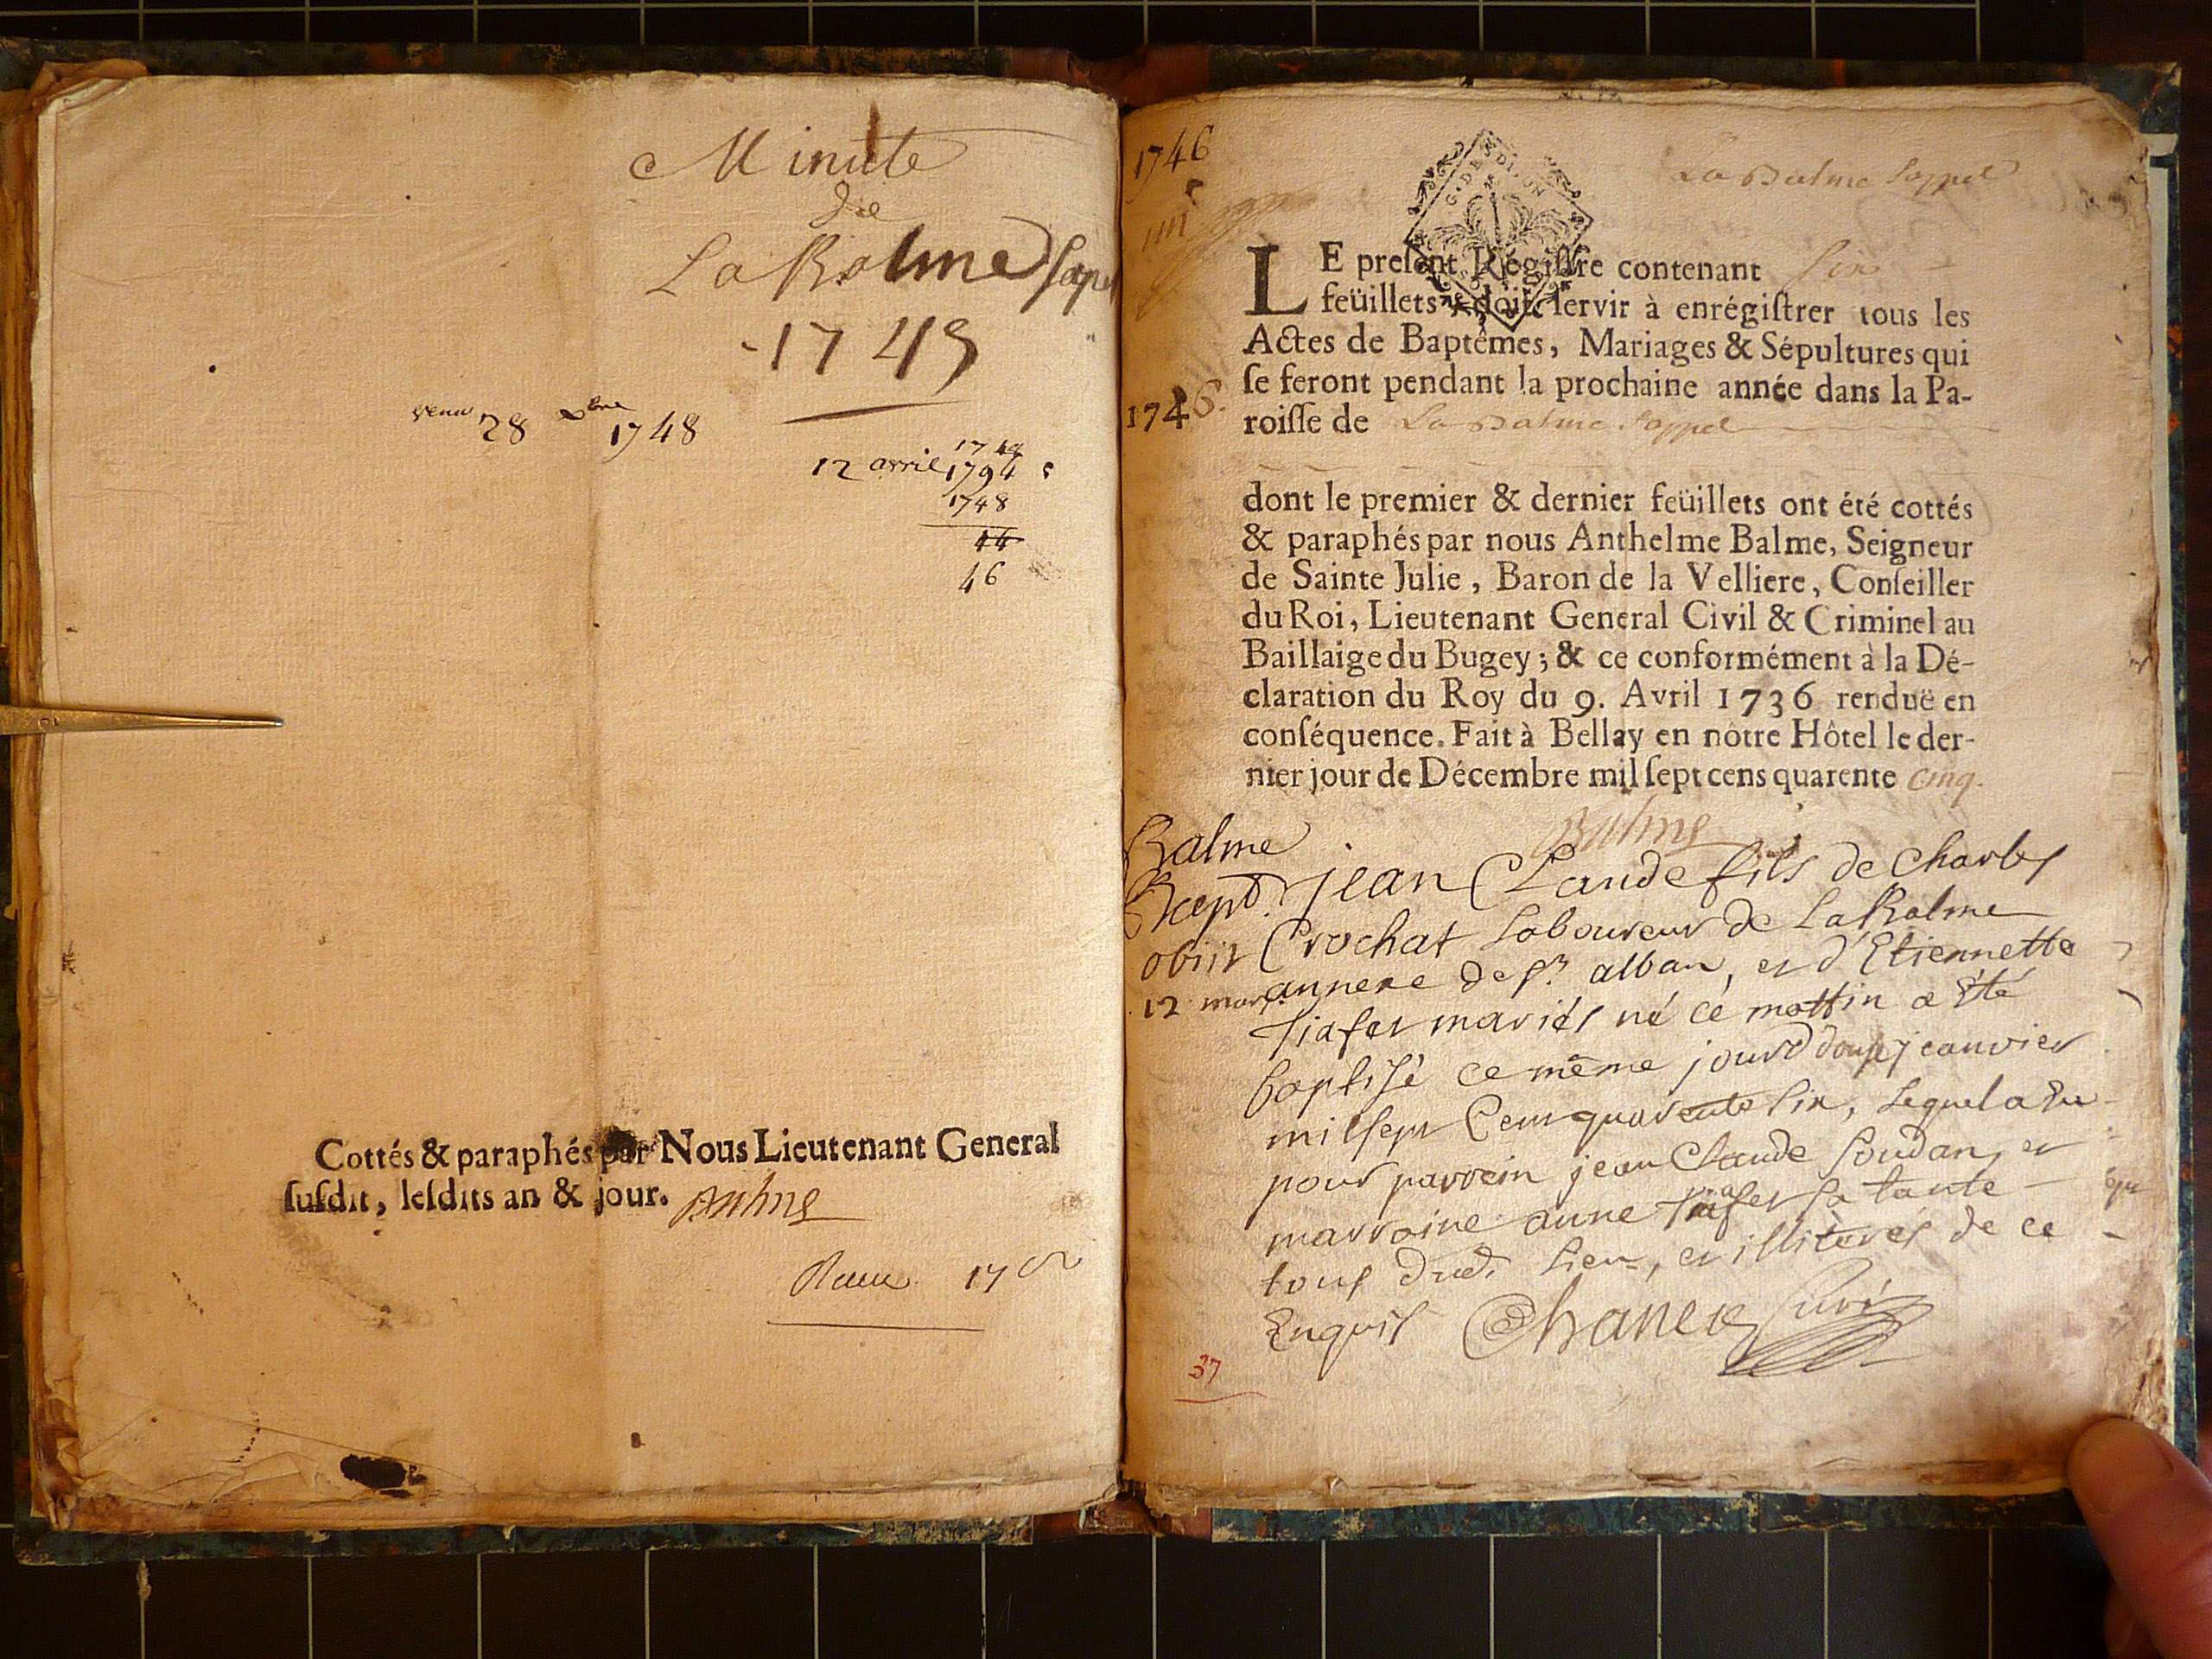 Minute
de
La Balme Sap
1745
28 xbre 1748
1749
12 avril 1794
1748
44
46
Cottés & paraphés par Nous Lieutenant General
suſdit, leſdits an & jour. Balme
1746
La Balme Sappel
LE preſent Régiſtre contenant Six
feüillets, doit ſervir à enrégiſtrer tous les
Actes de Baptêmes, Mariages & Sépultures qui
ſe feront pendant la prochaine année dans la Pa-
1746.
roiſſe de La Balme Sappel
dont le premier & dernier feüillets ont été cottés
& paraphés par nous Anthelme Balme, Seigneur
de Sainte Julie, Baron de la Velliere, Conſeiller
du Roi, Lieutenant General Civil & Criminel au
Baillaige du Bugey; & ce conformément à la Dé-
claration du Roy du 9. Avril 1736 renduë en
conſéquence. Fait à Bellay en nôtre Hôtel le der-
nier jour de Décembre mil ſept cens quarente cinq.
Balme
Balme
Bapt.
obiit
12 mars
jean Claude fils de Charles
Crochat Laboureur de La Balme
annexe de St. alban, et d'Etiennette
mariés né ce mattin a été
baptisé ce même jour douze jeanvier
mil sept Cent quarente six, lequel a Eu
pour parrein jean Claude Soudan, et
marroine anne sa tante
tous dud. Lieu, et illiterés de ce
Enquis Chanel Curé
37